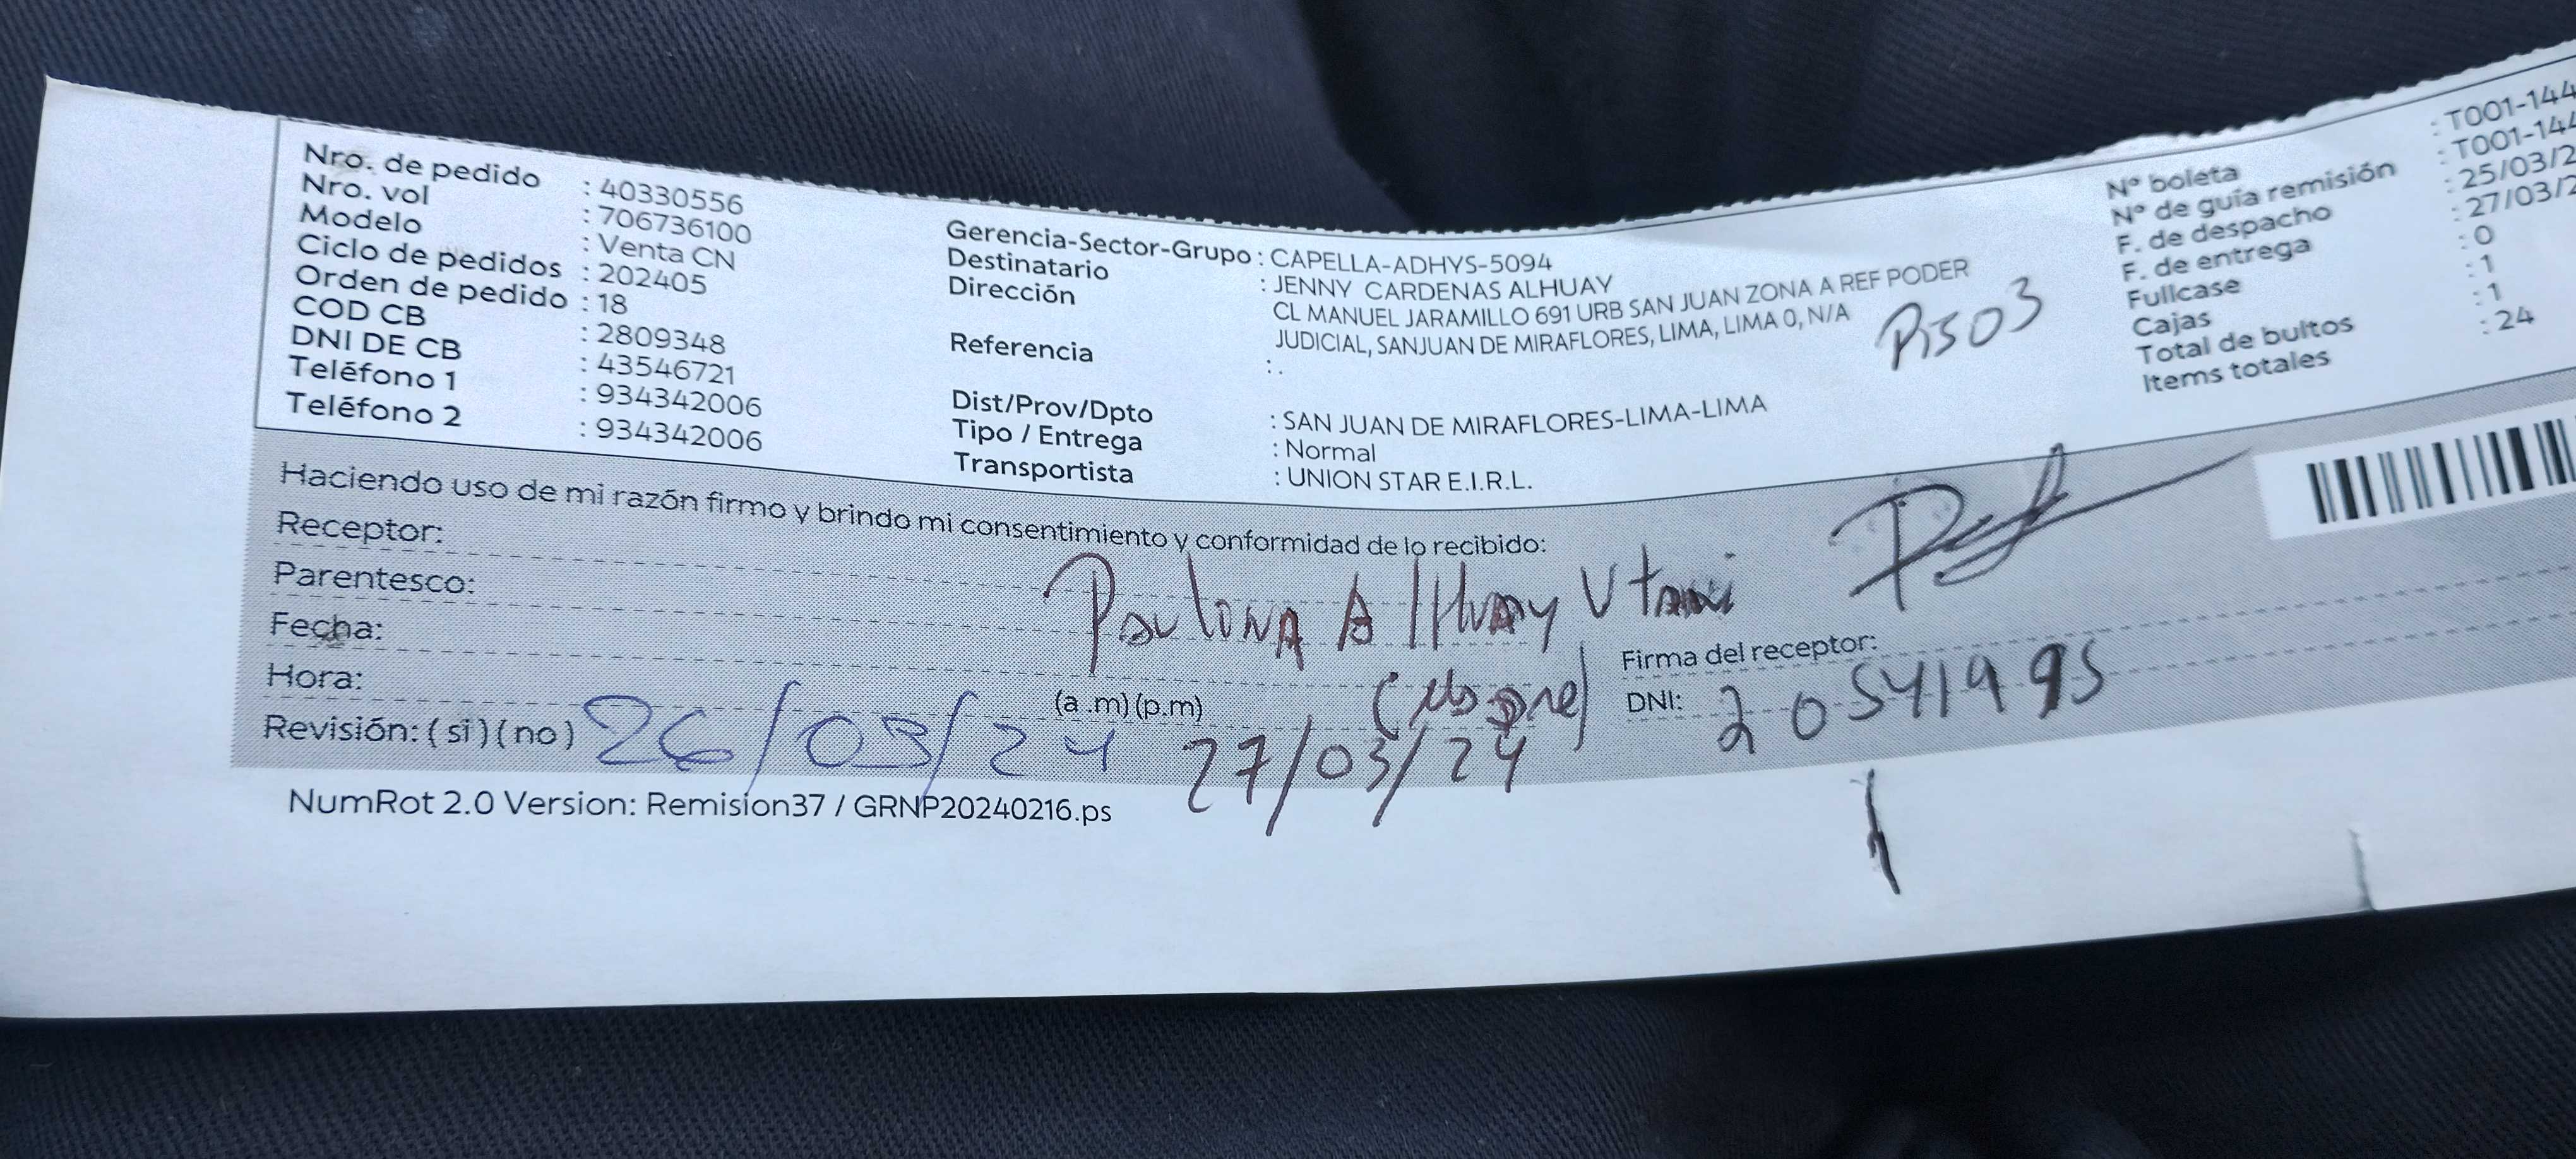 Nro. de pedido : 40330556
Nro. vol : 706736100
Modelo : Venta CN
Ciclo de pedidos : 202405
Orden de pedido : 18
COD CB : 2809348
DNI DE CB : 43546721
Teléfono 1 : 934342006
Teléfono 2 : 934342006
Gerencia-Sector-Grupo : CAPELLA-ADHYS-5094
Destinatario : JENNY CARDENAS ALHUAY
Dirección CL MANUEL JARAMILLO 691 URB SAN JUAN ZONA A REF PODER
JUDICIAL, SANJUAN DE MIRAFLORES, LIMA, LIMA 0, N/A
Referencia : .
PISO 3
Dist/Prov/Dpto : SAN JUAN DE MIRAFLORES-LIMA-LIMA
Tipo / Entrega : Normal
Transportista : UNION STAR E.I.R.L.
N° boleta : T001-144
N° de guía remisión : T001-144
F. de despacho : 25/03/2
F. de entrega : 27/03/2
Fullcase : 0
Cajas : 1
Total de bultos : 1
Items totales : 24
Haciendo uso de mi razón firmo y brindo mi consentimiento y conformidad de lo recibido:
Receptor:
Parentesco:
Alhuay
Fecha:
Hora: (a.m)(p.m)
Revisión: (si)(no) 26/03/24 27/03/24
Firma del receptor:
DNI: 20541995
NumRot 2.0 Version: Remision37 / GRNP20240216.ps